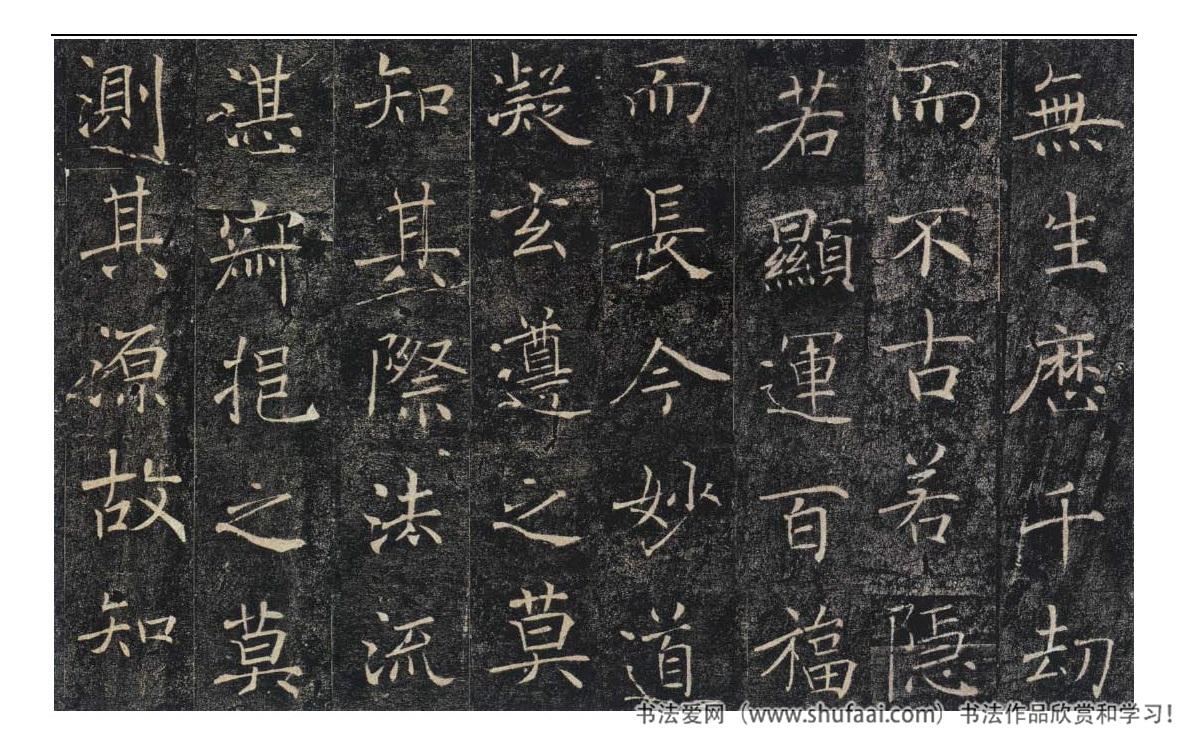 無生歷千劫
而不古若隱
若顯運百福
而長今妙道
凝玄遵之莫
知其際法流
湛寂挹之莫
測其源故知
书法爱网（www.shufaai.com）书法作品欣赏和学习！